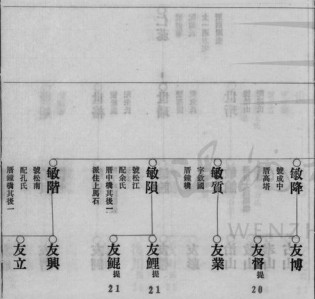 敏降
號成中
厝高塔
敏質
字欽國
厝鐘橋
敏隕
號松江
配余氏
厝中橋其後一
派住上馬石
敏階
號松南
配孔氏
厝鐘橋其後一
友博
友督 提
20
友業
友鯉 提
21
友鯤 提
21
友興
友立
WENZH